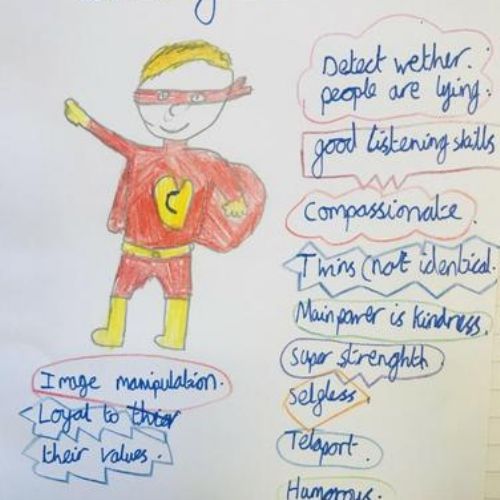 Detect wether.
people are lying.
good listening skills
Compassionate.
Twins (not identical.
Main power is kindness.
super strenghth.
Selgless.
Teleport.
Humorous.
C
Image manipulation.
Loyal to their
their values.